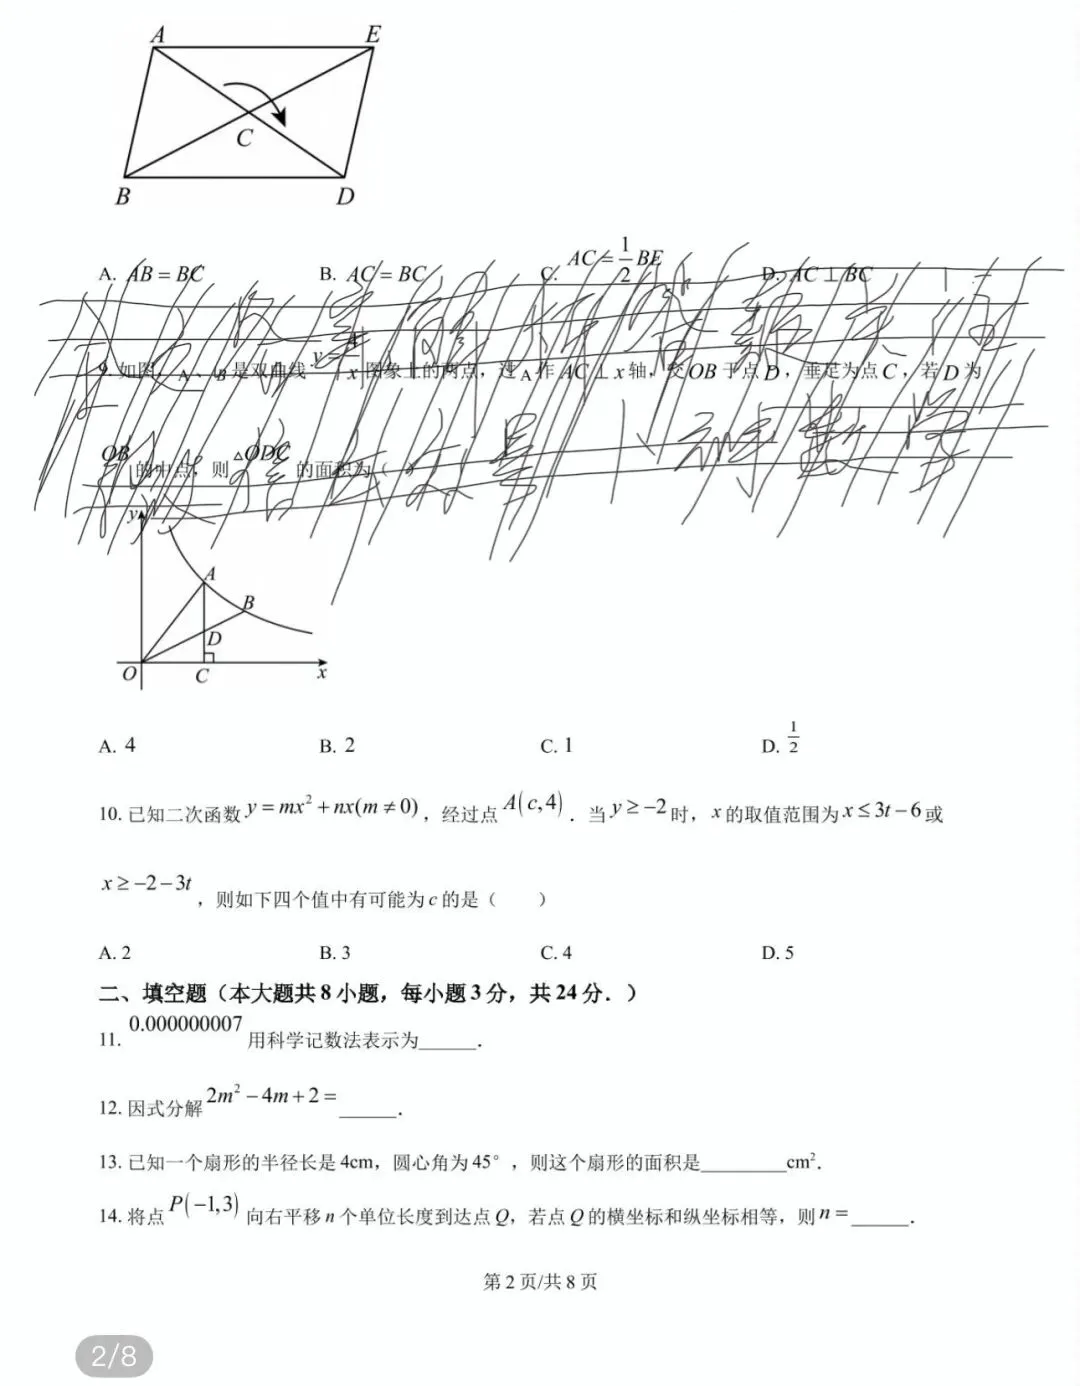 A E
C
B D
A. AB = BC B. AC = BC C. AC = 1/2 BE D. AC ⊥ BC
9. 如图，A、B是双曲线 y = 4/x 图象上的两点，过A作AC ⊥ x轴，交OB于点D，垂足为点C，若D为
OB的中点，则△ODC的面积为（ ）
y
A
B
D
O C x
A. 4 B. 2 C. 1 D. 1/2
10. 已知二次函数 y = mx² + nx(m ≠ 0)，经过点 A(c,4)．当 y ≥ −2 时，x的取值范围为 x ≤ 3t − 6 或
x ≥ −2 − 3t，则如下四个值中有可能为c的是（ ）
A. 2 B. 3 C. 4 D. 5
二、填空题（本大题共8小题，每小题3分，共24分．）
11. 0.000000007 用科学记数法表示为______．
12. 因式分解 2m² − 4m + 2 = ______．
13. 已知一个扇形的半径长是4cm，圆心角为45°，则这个扇形的面积是_________cm²．
14. 将点 P(−1,3) 向右平移n个单位长度到达点Q，若点Q的横坐标和纵坐标相等，则 n = ______．
第2页/共8页
2/8